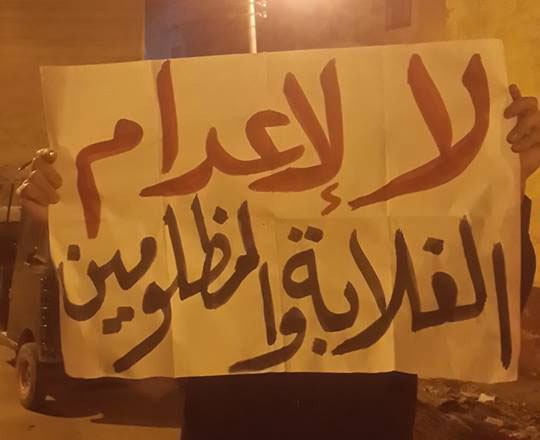 لا لإعدام
الغلابة والمظلومين